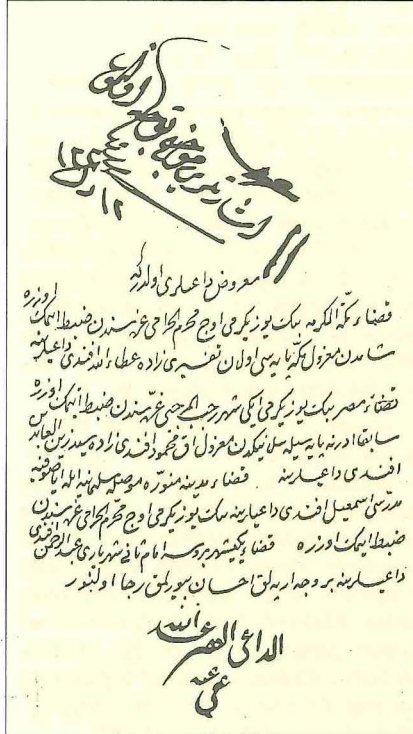 اشارتلری موجبنجه توجیه اولنه
معروض داعیلری اولدر که
قضاء مکّة المکرمه بیك یوز یکرمی اوچ محرم الحرامی غره سندن ضبط ایتمك اوزره
شامدن معزول مکّه پایه سی اولان تفسیری زاده عطاء الله افندی داعیلرینه
قضاء مصر بیك یوز یکرمی ایکی شهر رجب المرجبی غره سندن ضبط ایتمك اوزره
سابقا ادرنه پایه سیله سلانیکدن معزول محمود افندی زاده سید زین العابدین
افندی داعیلرینه قضاء مدینه منوّره موصله سلیمانیه ایله ایاصوفیه
مدرسی اسمعیل افندی داعیلرینه بیك یوز یکرمی اوچ محرم الحرامی غره سندن
ضبط ایتمك اوزره قضاء یکیشهر بروسه امام ثانئ شهریاری عبد الرحمن افندی
داعیلرینه بر وجه ارپه لق احسان بیورلمق رجا اولنور
الداعی الفقیر عبد الله
عفی عنه